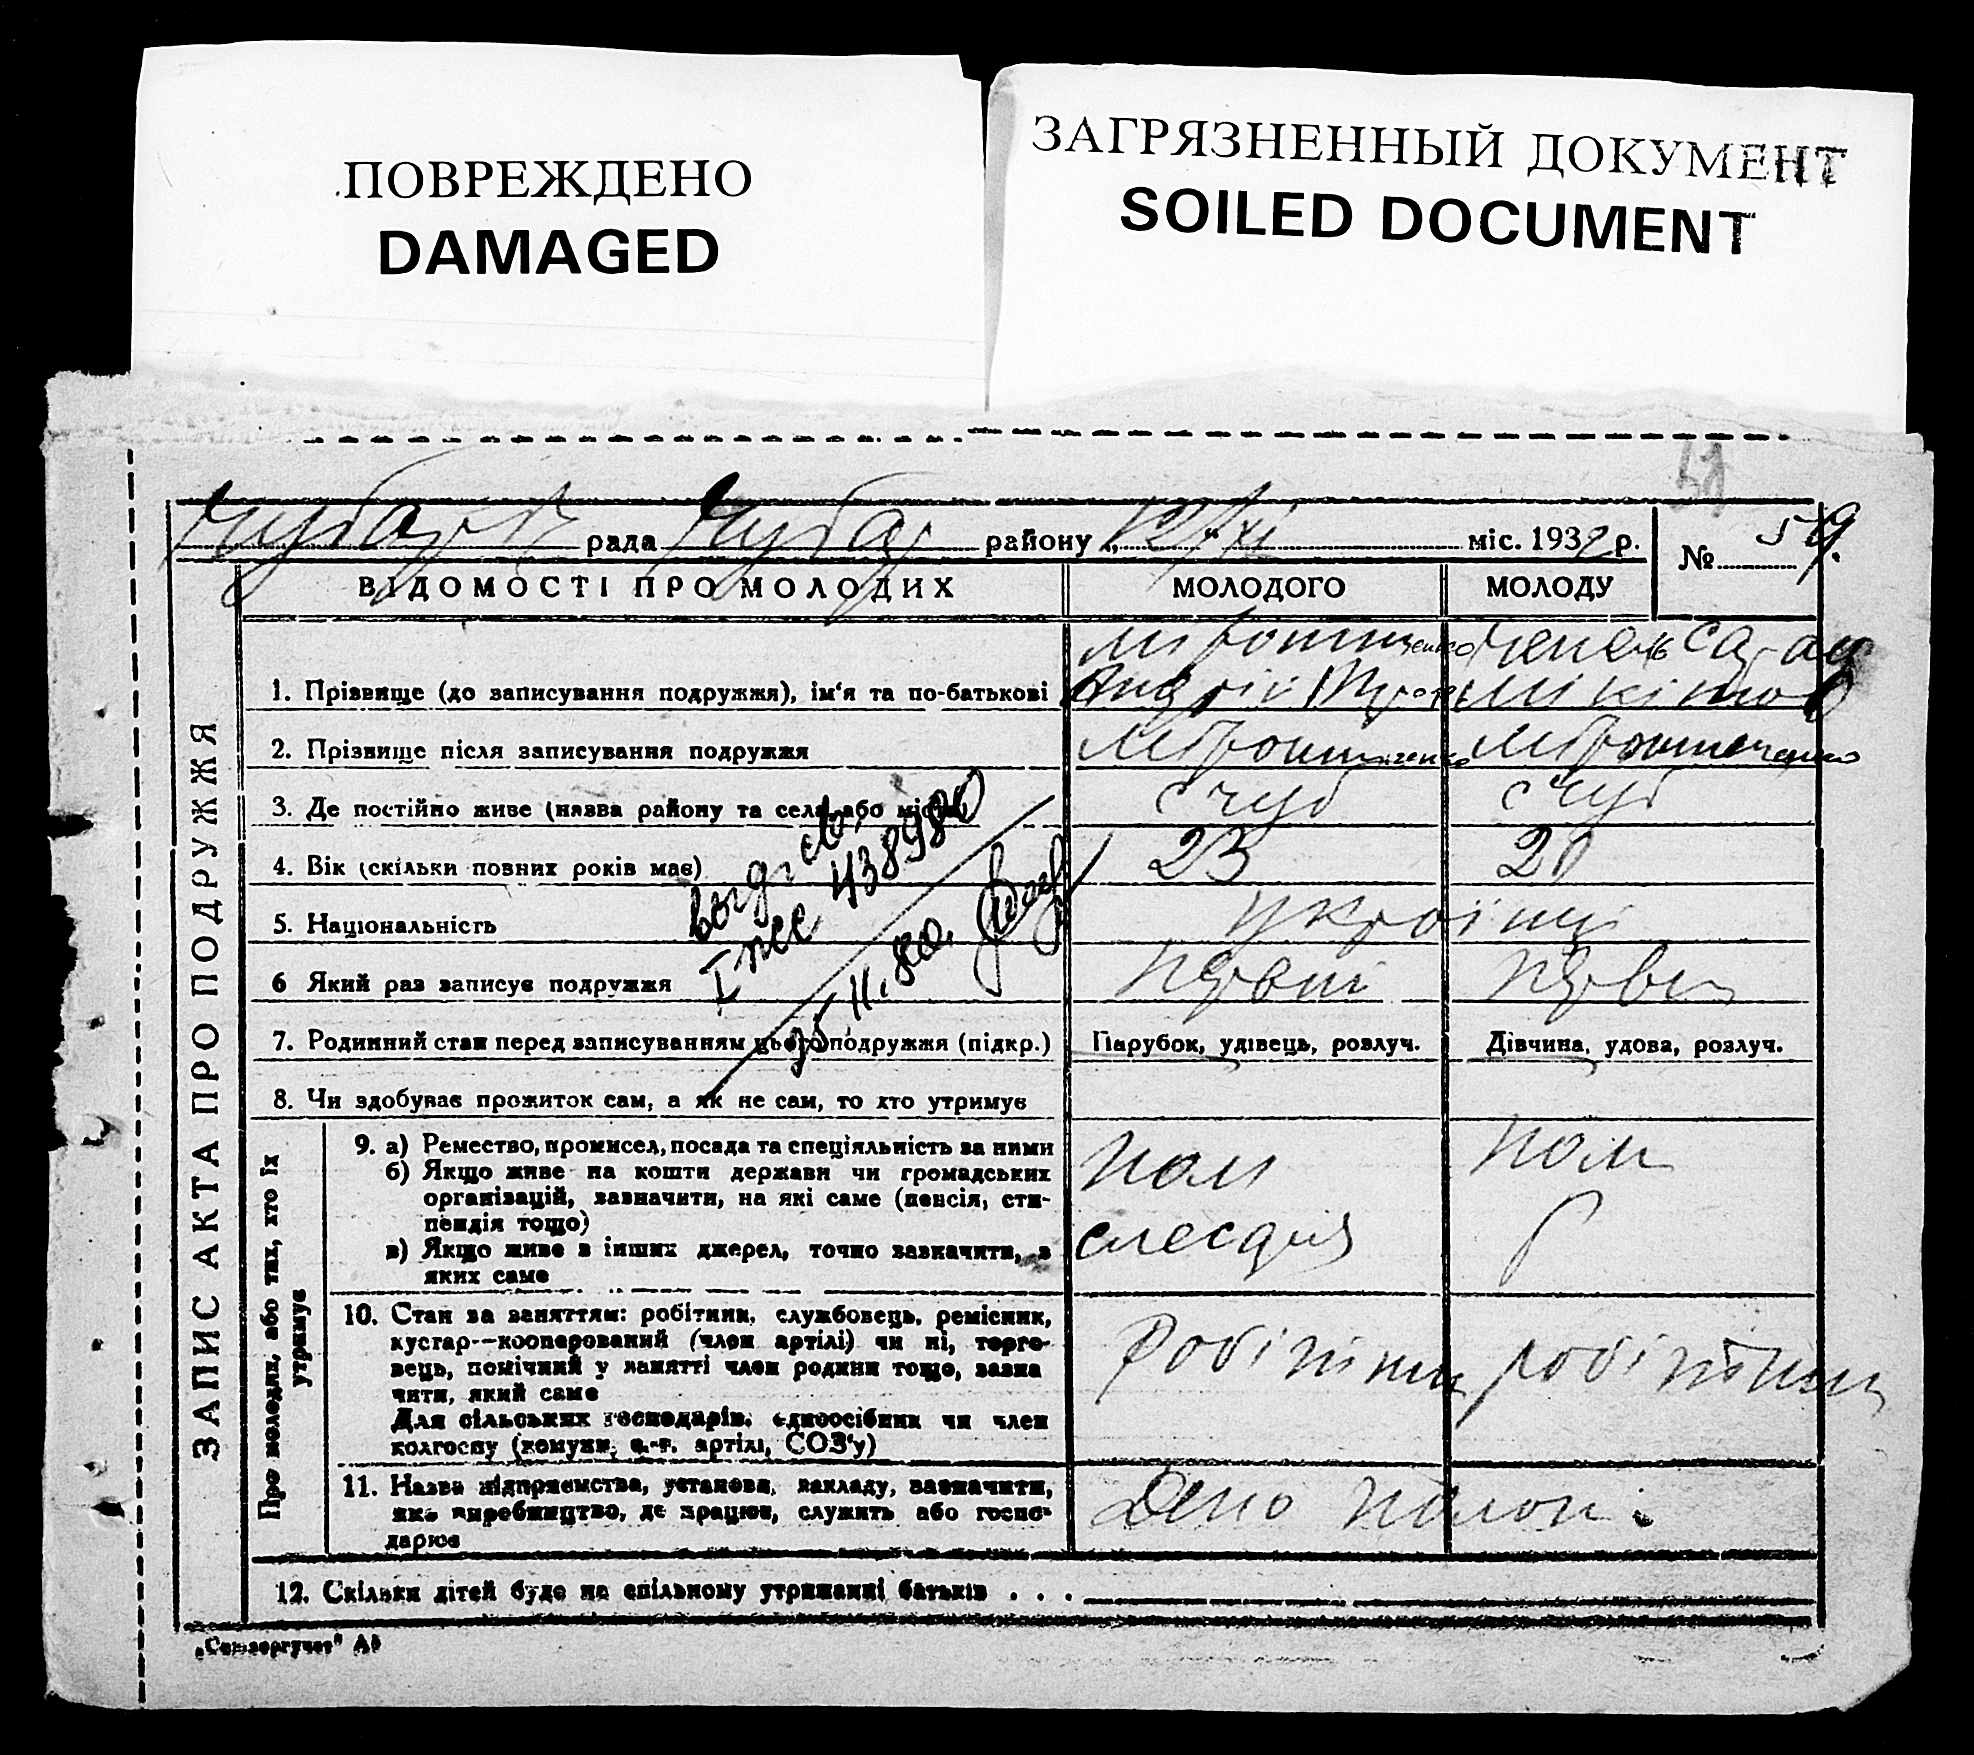 ПОВРЕЖДЕНО
DAMAGED
ЗАГРЯЗНЕННЫЙ ДОКУМЕНТ
SOILED DOCUMENT
51
рада Чубар району „12/XI“ міс. 1932 р. № 59.
ЗАПИС АКТА ПРО ПОДРУЖЖЯ
ВІДОМОСТІ ПРО МОЛОДИХ МОЛОДОГО МОЛОДУ
1. Прізвище (до записування подружжя), ім'я та по-батькові
Андрій
2. Прізвище після записування подружжя Мірошниченко Мірошниченко
3. Де постійно живе (назва району та села або міста) с Чуб с Чуб
4. Вік (скільки повних років має) 23 20
5. Національність українці
6 Який раз записує подружжя
7. Родинний стан перед записуванням цього подружжя (підкр.) Парубок, удівець, розлуч. Дівчина, удова, розлуч.
8. Чи здобуває прожиток сам, а як не сам, то хто утримує
Про молодих, або тих, хто їх утримує
9. а) Ремество, промисел, посада та спеціяльність за ними
б) Якщо живе на кошти держави чи громадських
організацій, зазначити, на які саме (пенсія, сти-
пендія тощо)
в) Якщо живе з інших джерел, точно зазначити, з
яких саме
10. Стан за заняттям: робітник, службовець, ремісник,
кустар--кооперований (член артілі) чи ні, торго-
вець, помічний у занятті член родини тощо, зазна
чити, який саме
Для сільських господарів, одноосібник чи член
колгоспу (комуни, с.-г. артілі, СОЗ'у)
11. Назва підприємства, установи, закладу, зазначити,
яке виробництво, де працює, служить або госпо-
дарює
Депо
12. Скільки дітей буде на спільному утриманні батьків . . .
выд. св.
I ЖС 438980
25 11. 80.